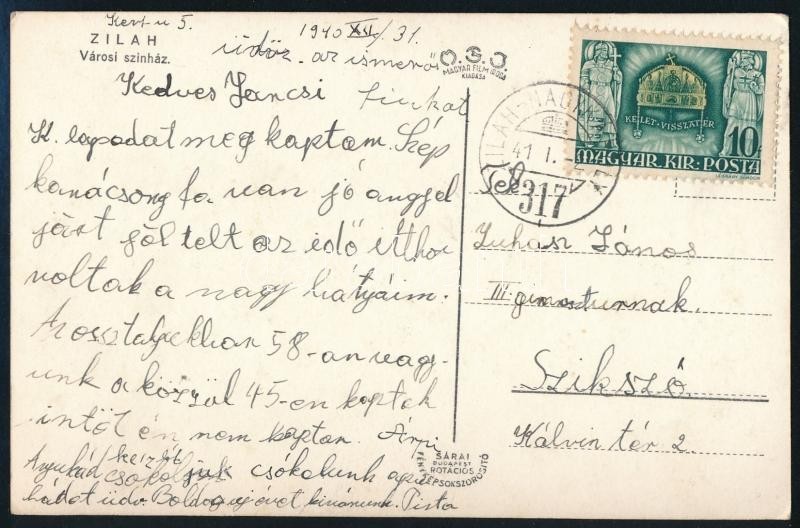 Kert u 5.
ZILAH
Városi szinház.
1940 XII/31.
üdöz. az ismerő
Kedves Jancsi fiukat
K. lapodat meg kaptam. Szép
karácsony fa van jó angyel
járt jól telt az idő itthon
voltak a nagy bátyáim.
Az osztályukban 58-an vagy-
unk a közzül 45-en kaptak
intőt én nem kaptam. Árpi
Anyukád csókoljuk csókolunk
üdv. Boldog uj évet kivánunk. Pista
O.S.J.
MAGYAR FILM IRODA
KIADÁSA
SÁRAI
BUDAPEST
ROTÁCIÓS
FÉNYKÉPSOKSZOROSITÓ
KELET VISSZATÉR
10f
MAGYAR KIR. POSTA
LÉGRÁDY SÁNDOR
ZILAH-NAGYVÁRAD
41 I.
317
Juhász János
III gimnáziumnak.
Szikszó.
Kálvin tér 2.